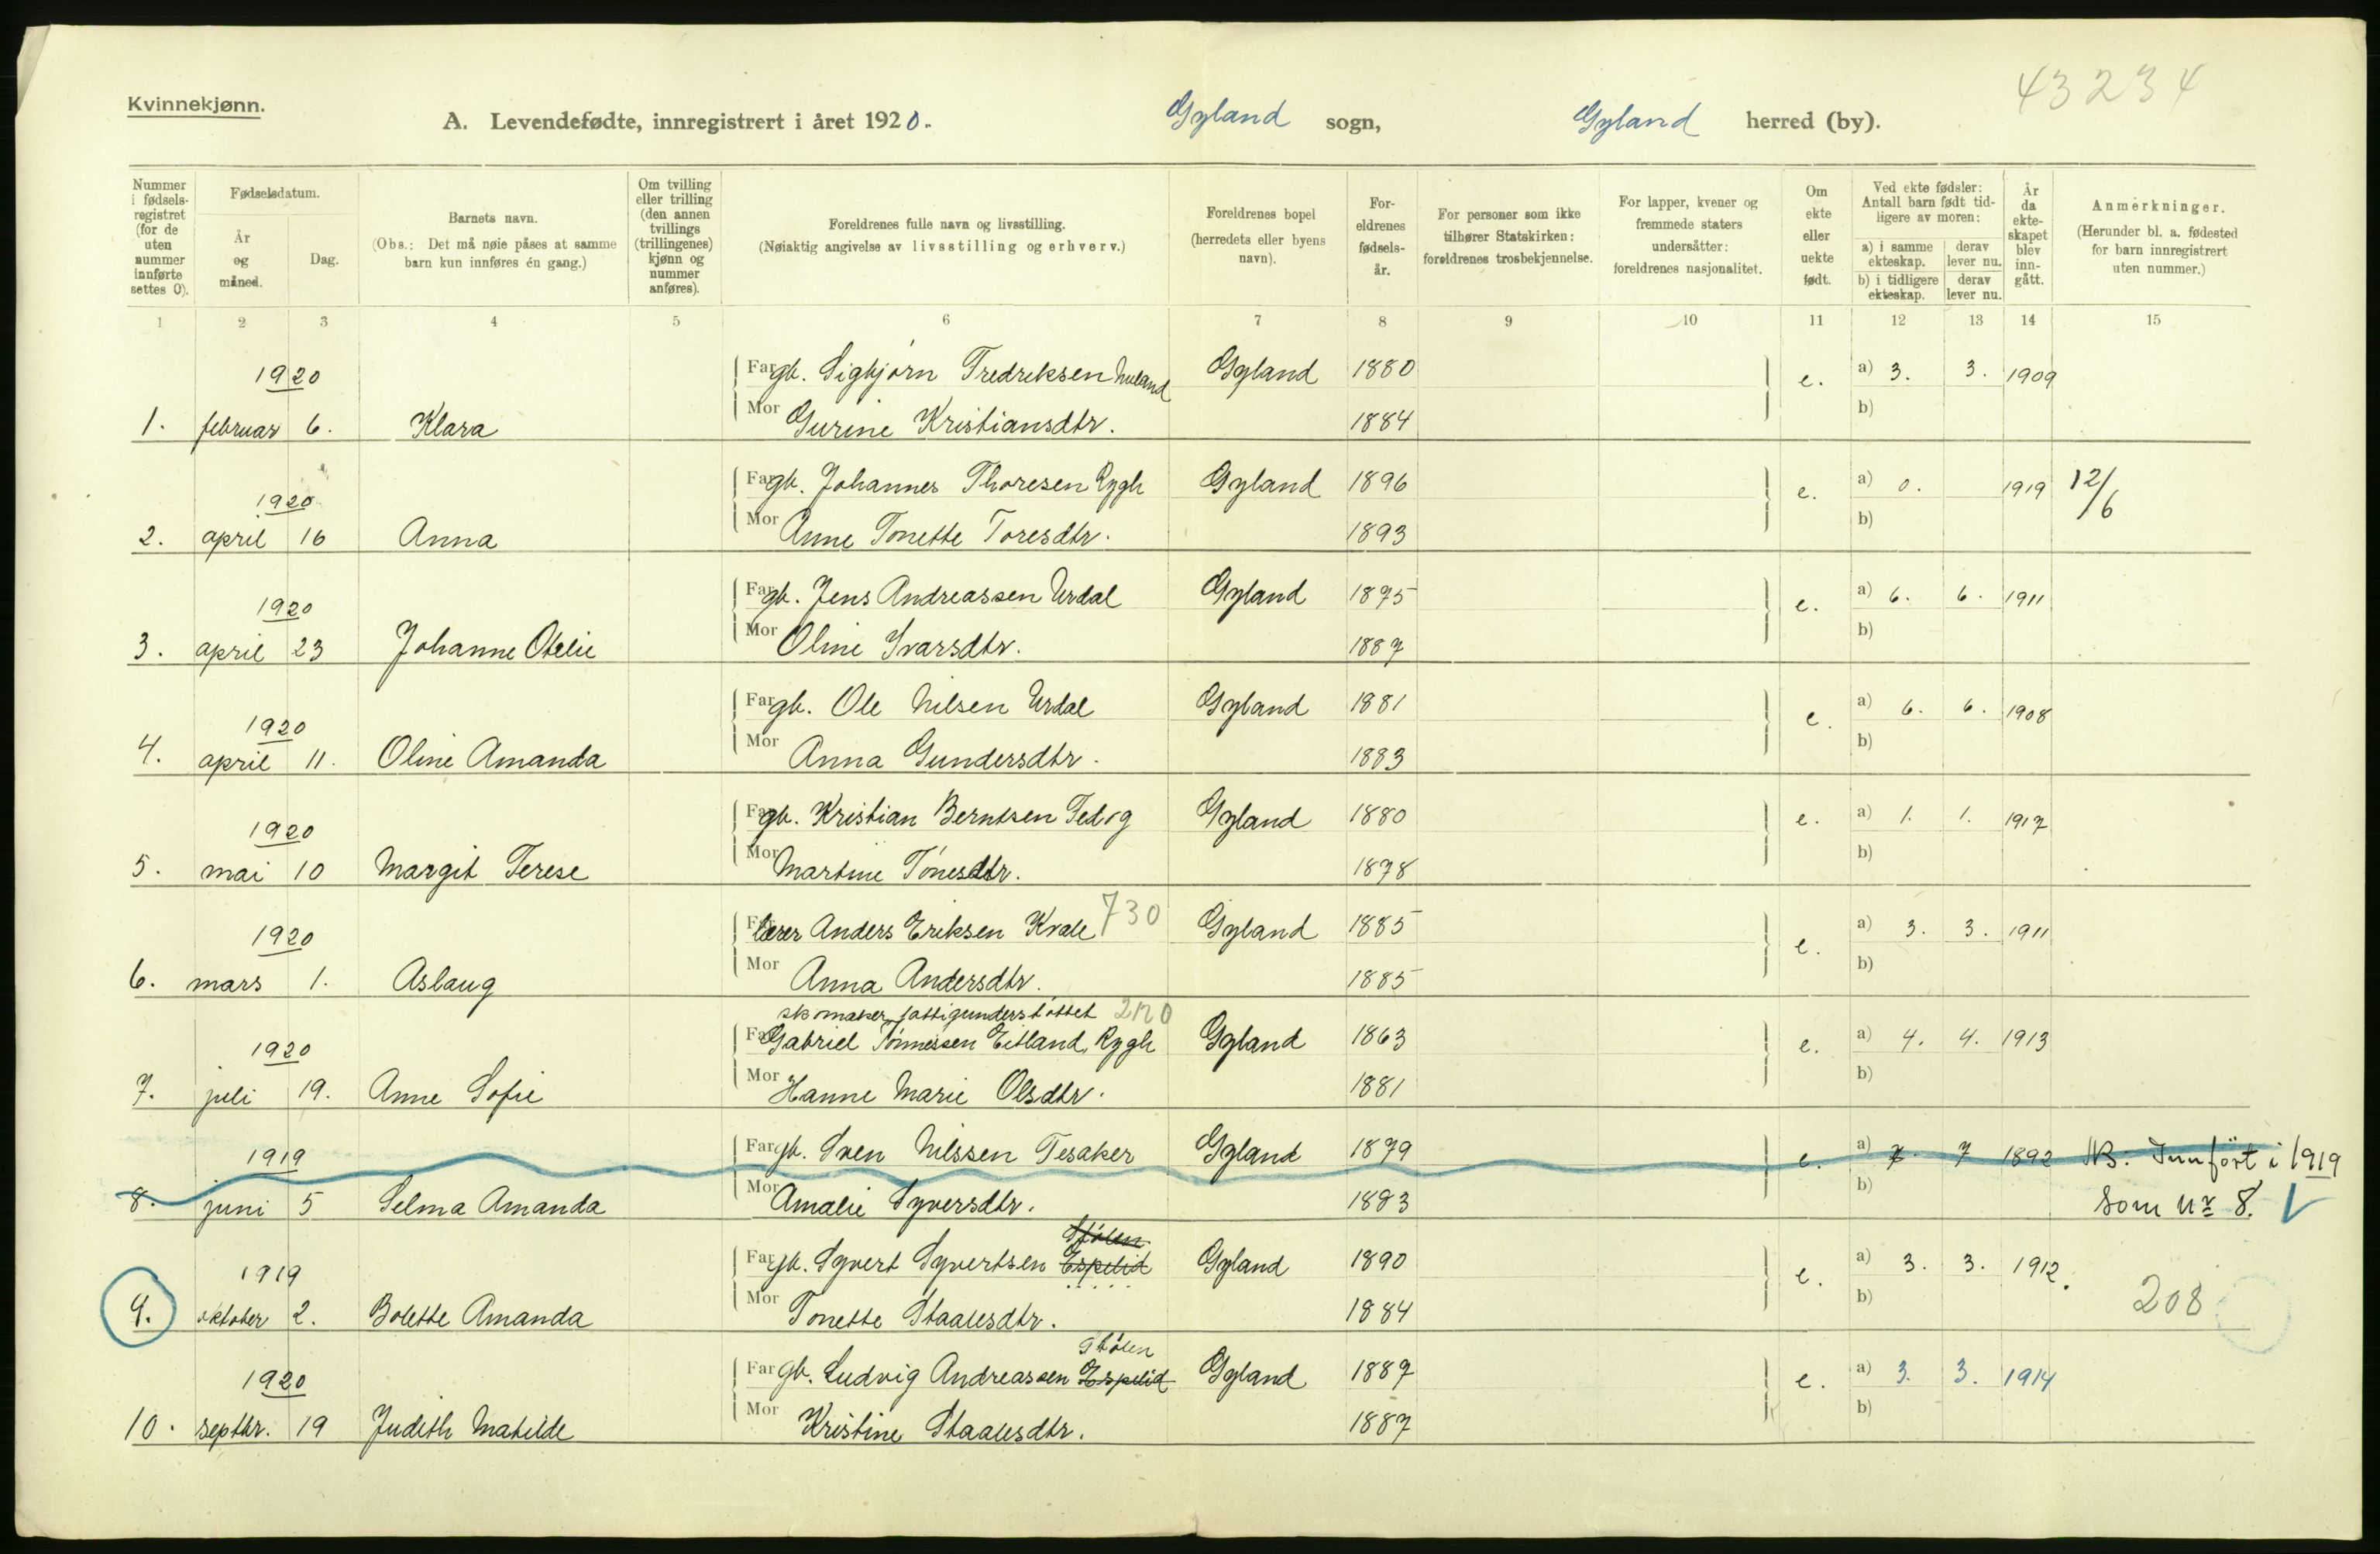 43234
Kvinnekjønn.
A. Levendefødte, innregistrert i året 1920. Gyland sogn, Gyland herred (by).
Nummer i fødsels-registret (for de uten nummer innførte settes 0).
Fødselsdatum.
År og måned.
Dag.
Barnets navn.
(Obs.: Det må nøie påses at samme barn kun innføres én gang.)
Om tvilling eller trilling (den annen tvillings (trillingenes) kjønn og nummer anføres).
Foreldrenes fulle navn og livsstilling.
(Nøiaktig angivelse av livsstilling og erhverv.)
Foreldrenes bopel (herredets eller byens navn).
For-eldrenes fødsels-år.
For personer som ikke tilhører Statskirken: foreldrenes trosbekjennelse.
For lapper, kvener og fremmede staters undersåtter: foreldrenes nasjonalitet.
Om ekte eller uekte født.
Ved ekte fødsler: Antall barn født tid-ligere av moren:
a) i samme ekteskap. derav lever nu.
b) i tidligere ekteskap. derav lever nu.
År da ekte-skapet blev inn-gått.
Anmerkninger.
(Herunder bl. a. fødested for barn innregistrert uten nummer.)
1 2 3 4 5 6 7 8 9 10 11 12 13 14 15
1920 Far gb. Sigbjørn Fredriksen Nuland Gyland 1880 e. a) 3. 3. 1909
1. februar 6. Klara Mor Gurine Kristiansdtr. 1884 b)
1920 Far gb. Johannes Thoresen Rygh Gyland 1896 e. a) 0. 1919 12/6
2. april 16 Anna Mor Anne Tonette Toresdtr. 1893 b)
1920 Far gb. Jens Andreassen Urdal Gyland 1875 e. a) 6. 6. 1911
3. april 23 Johanne Otelie Mor Oline Ivarsdtr. 1887 b)
1920 Far gb. Ole Nilsen Urdal Gyland 1881 e. a) 6. 6. 1908
4. april 11. Oline Amanda Mor Anna Gundersdtr. 1883 b)
1920 Far gb. Kristian Berntsen Gyland 1880 e. a) 1. 1. 1917
5. mai 10 Margit Terese Mor Martine Tønesdtr. 1878 b)
1920 Far lærer Anders Eriksen Kvale 730 Gyland 1885 e. a) 3. 3. 1911
6. mars 1. Aslaug Mor Anna Andersdtr. 1885 b)
skomaker, fattigunderstøttet
1920 Far Gabriel Tønnessen Eitland, Rygh Gyland 1863 e. a) 4. 4. 1913
7. juli 19. Anne Sofie Mor Hanne Marie Olsdtr. 1881 b)
1919 Far gb. Sven Nilssen Tesaker Gyland 1879 e. a) 7. 7 1892 NB: Innført i 1919
8. juni 5 Selma Amanda Mor Amalie Syversdtr. 1883 b) som nr 8.
Stølen
1919 Far gb. Syvert Syvertsen Espelid Gyland 1890 e. a) 3. 3. 1912.
9. oktober 2. Bolette Amanda Mor Tonette Staalesdtr. 1884 b) 208
Stølen
1920 Far gb. Ludvig Andreassen Espelid Gyland 1887 e. a) 3. 3. 1914
10. septbr. 19 Judith Matilde Mor Kristine Staalesdtr. 1887 b)